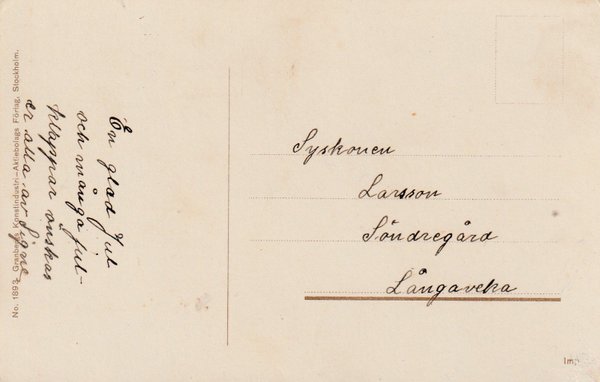 En glad Jul
och många jul-
klappar önskas
er alla av Signe.
Syskonen
Larsson
Söndregård
Långaveka
No. 1893. Granbergs Konstindustri-Aktiebolags Förlag, Stockholm.
Imp